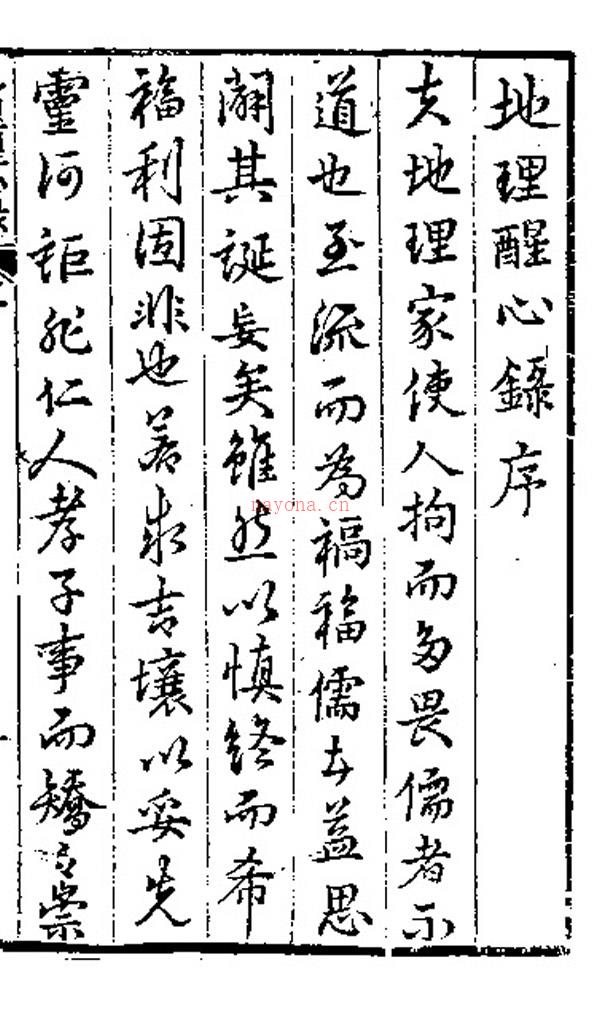 地理醒心錄序
夫地理家使人拘而多畏儒者不
道也至流而為禍福儒者益思
闢其誕妄矣雖然以慎終而希
福利固非也若求吉壤以妥先
靈何詎非仁人孝子事而矯之崇
nayona.cn